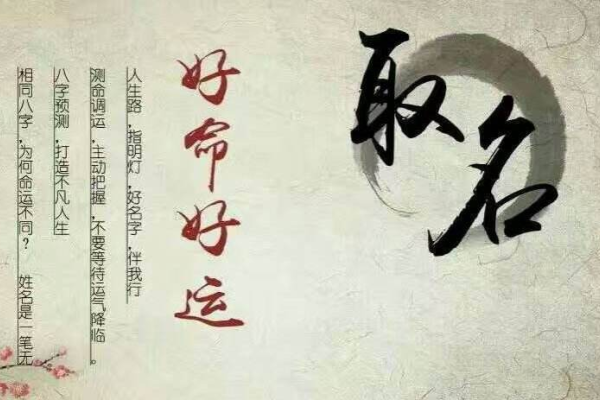 取名
好命好运
人生路,指明灯,好名字,伴我行
测命调运,主动把握,不要等待运气降临。
八字预测,打造不凡人生
相同八字,为何命运不同? 姓名是一笔无